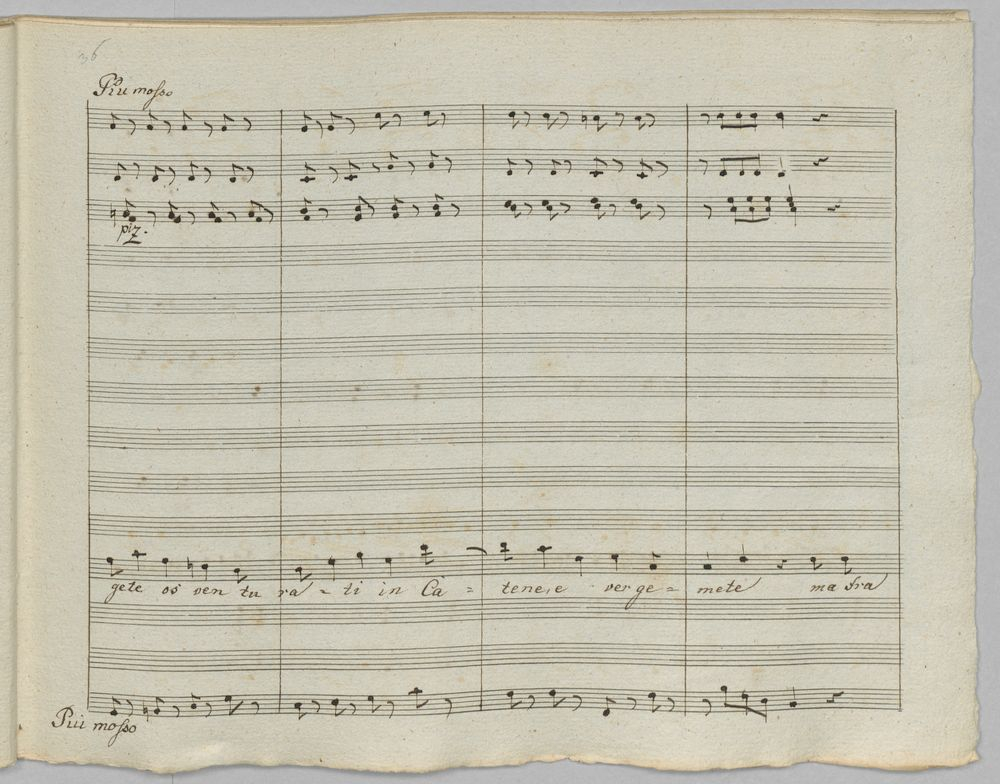 36
Più mosso
piz.
gete os ven tu ra - ti in Ca = tene, e ver ge = mete ma fra
Più mosso